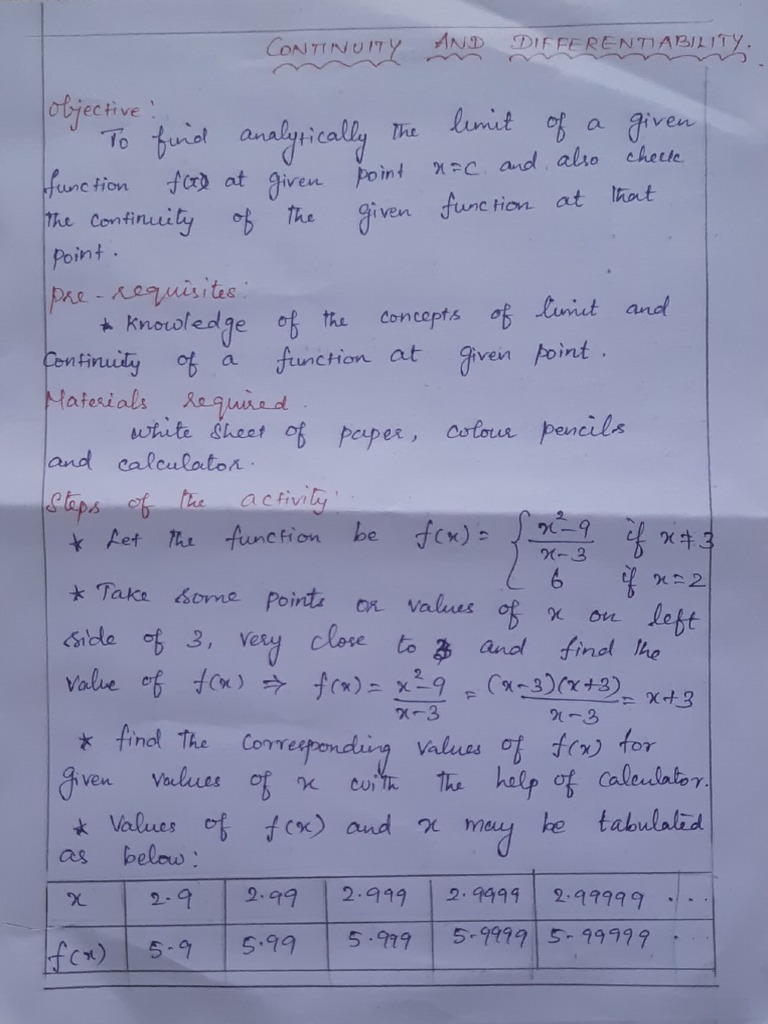 CONTINUITY AND DIFFERENTIABILITY.
Objective:
To find analytically the limit of a given
function f(x) at given point x=c and also check
the continuity of the given function at that
point.
Pre-requisites:
* Knowledge of the concepts of limit and
Continuity of a function at given point.
Materials required.
White Sheet of paper, colour pencils
and calculator.
Steps of the activity:
* Let the function be f(x) = { x²-9 / x-3 if x≠3
6 if x=2
* Take some points or values of x on left
side of 3, very close to 3 and find the
value of f(x) ⇒ f(x) = x²-9 / x-3 = (x-3)(x+3) / x-3 = x+3
* find the corresponding values of f(x) for
given values of x with the help of calculator.
* Values of f(x) and x may be tabulated
as below:
x 2.9 2.99 2.999 2.9999 2.99999 ...
f(x) 5.9 5.99 5.999 5.9999 5.99999 ..